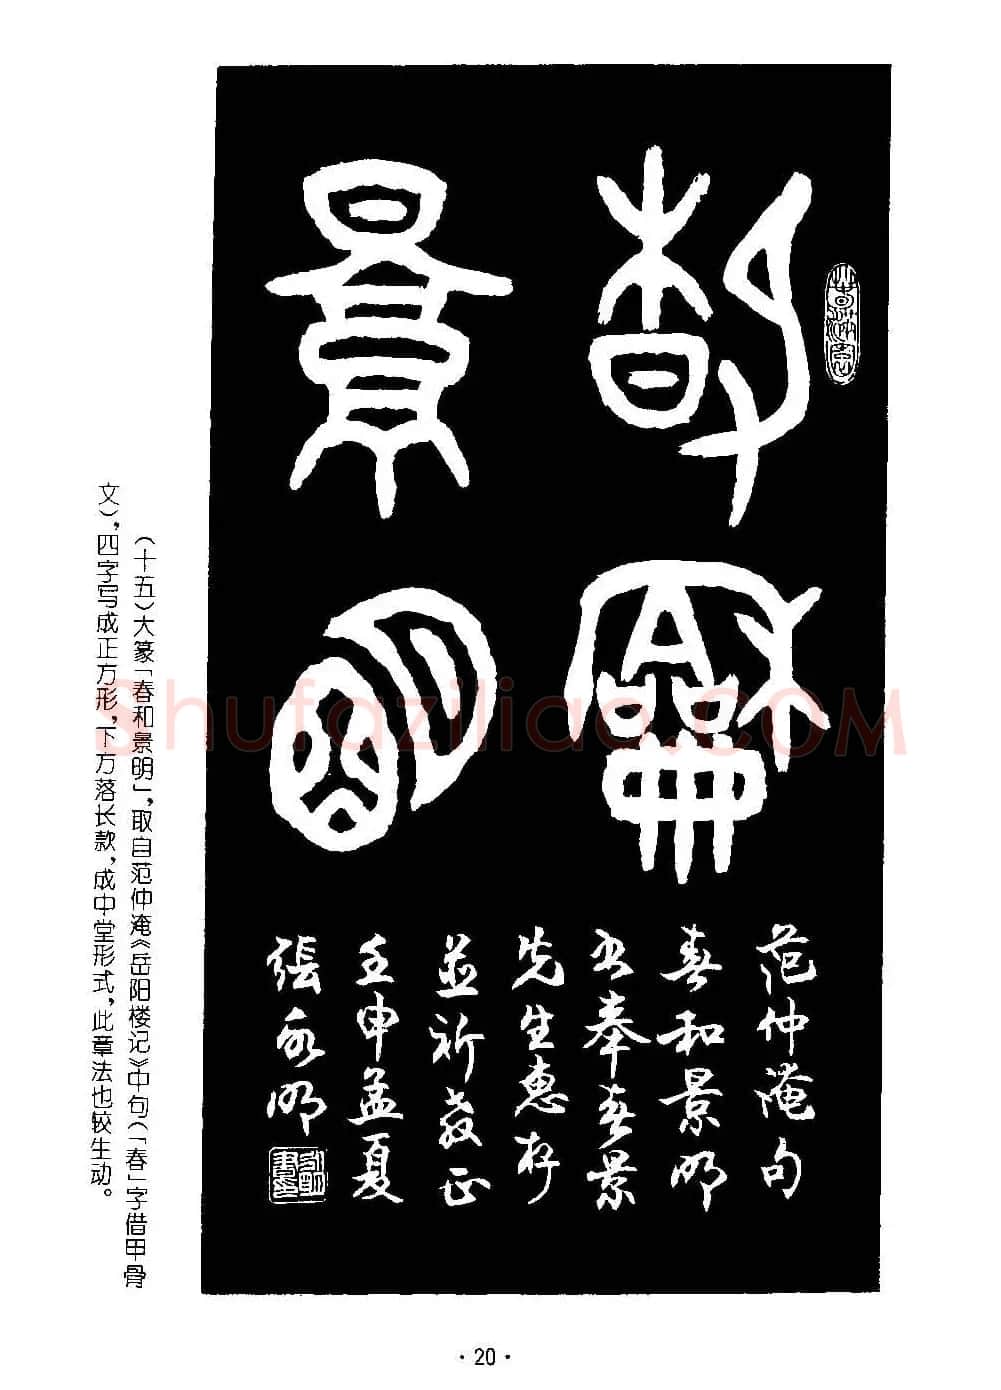 春龢
景明
范仲淹句
春和景明
书奉春景
先生惠存
並祈教正
壬申孟夏
張永明
(十五)大篆「春和景明」,取自范仲淹《岳阳楼记》中句(「春」字借甲骨
文),四字写成正方形,下方落长款,成中堂形式,此章法也较生动。
Shufaziliao.COM
·20·